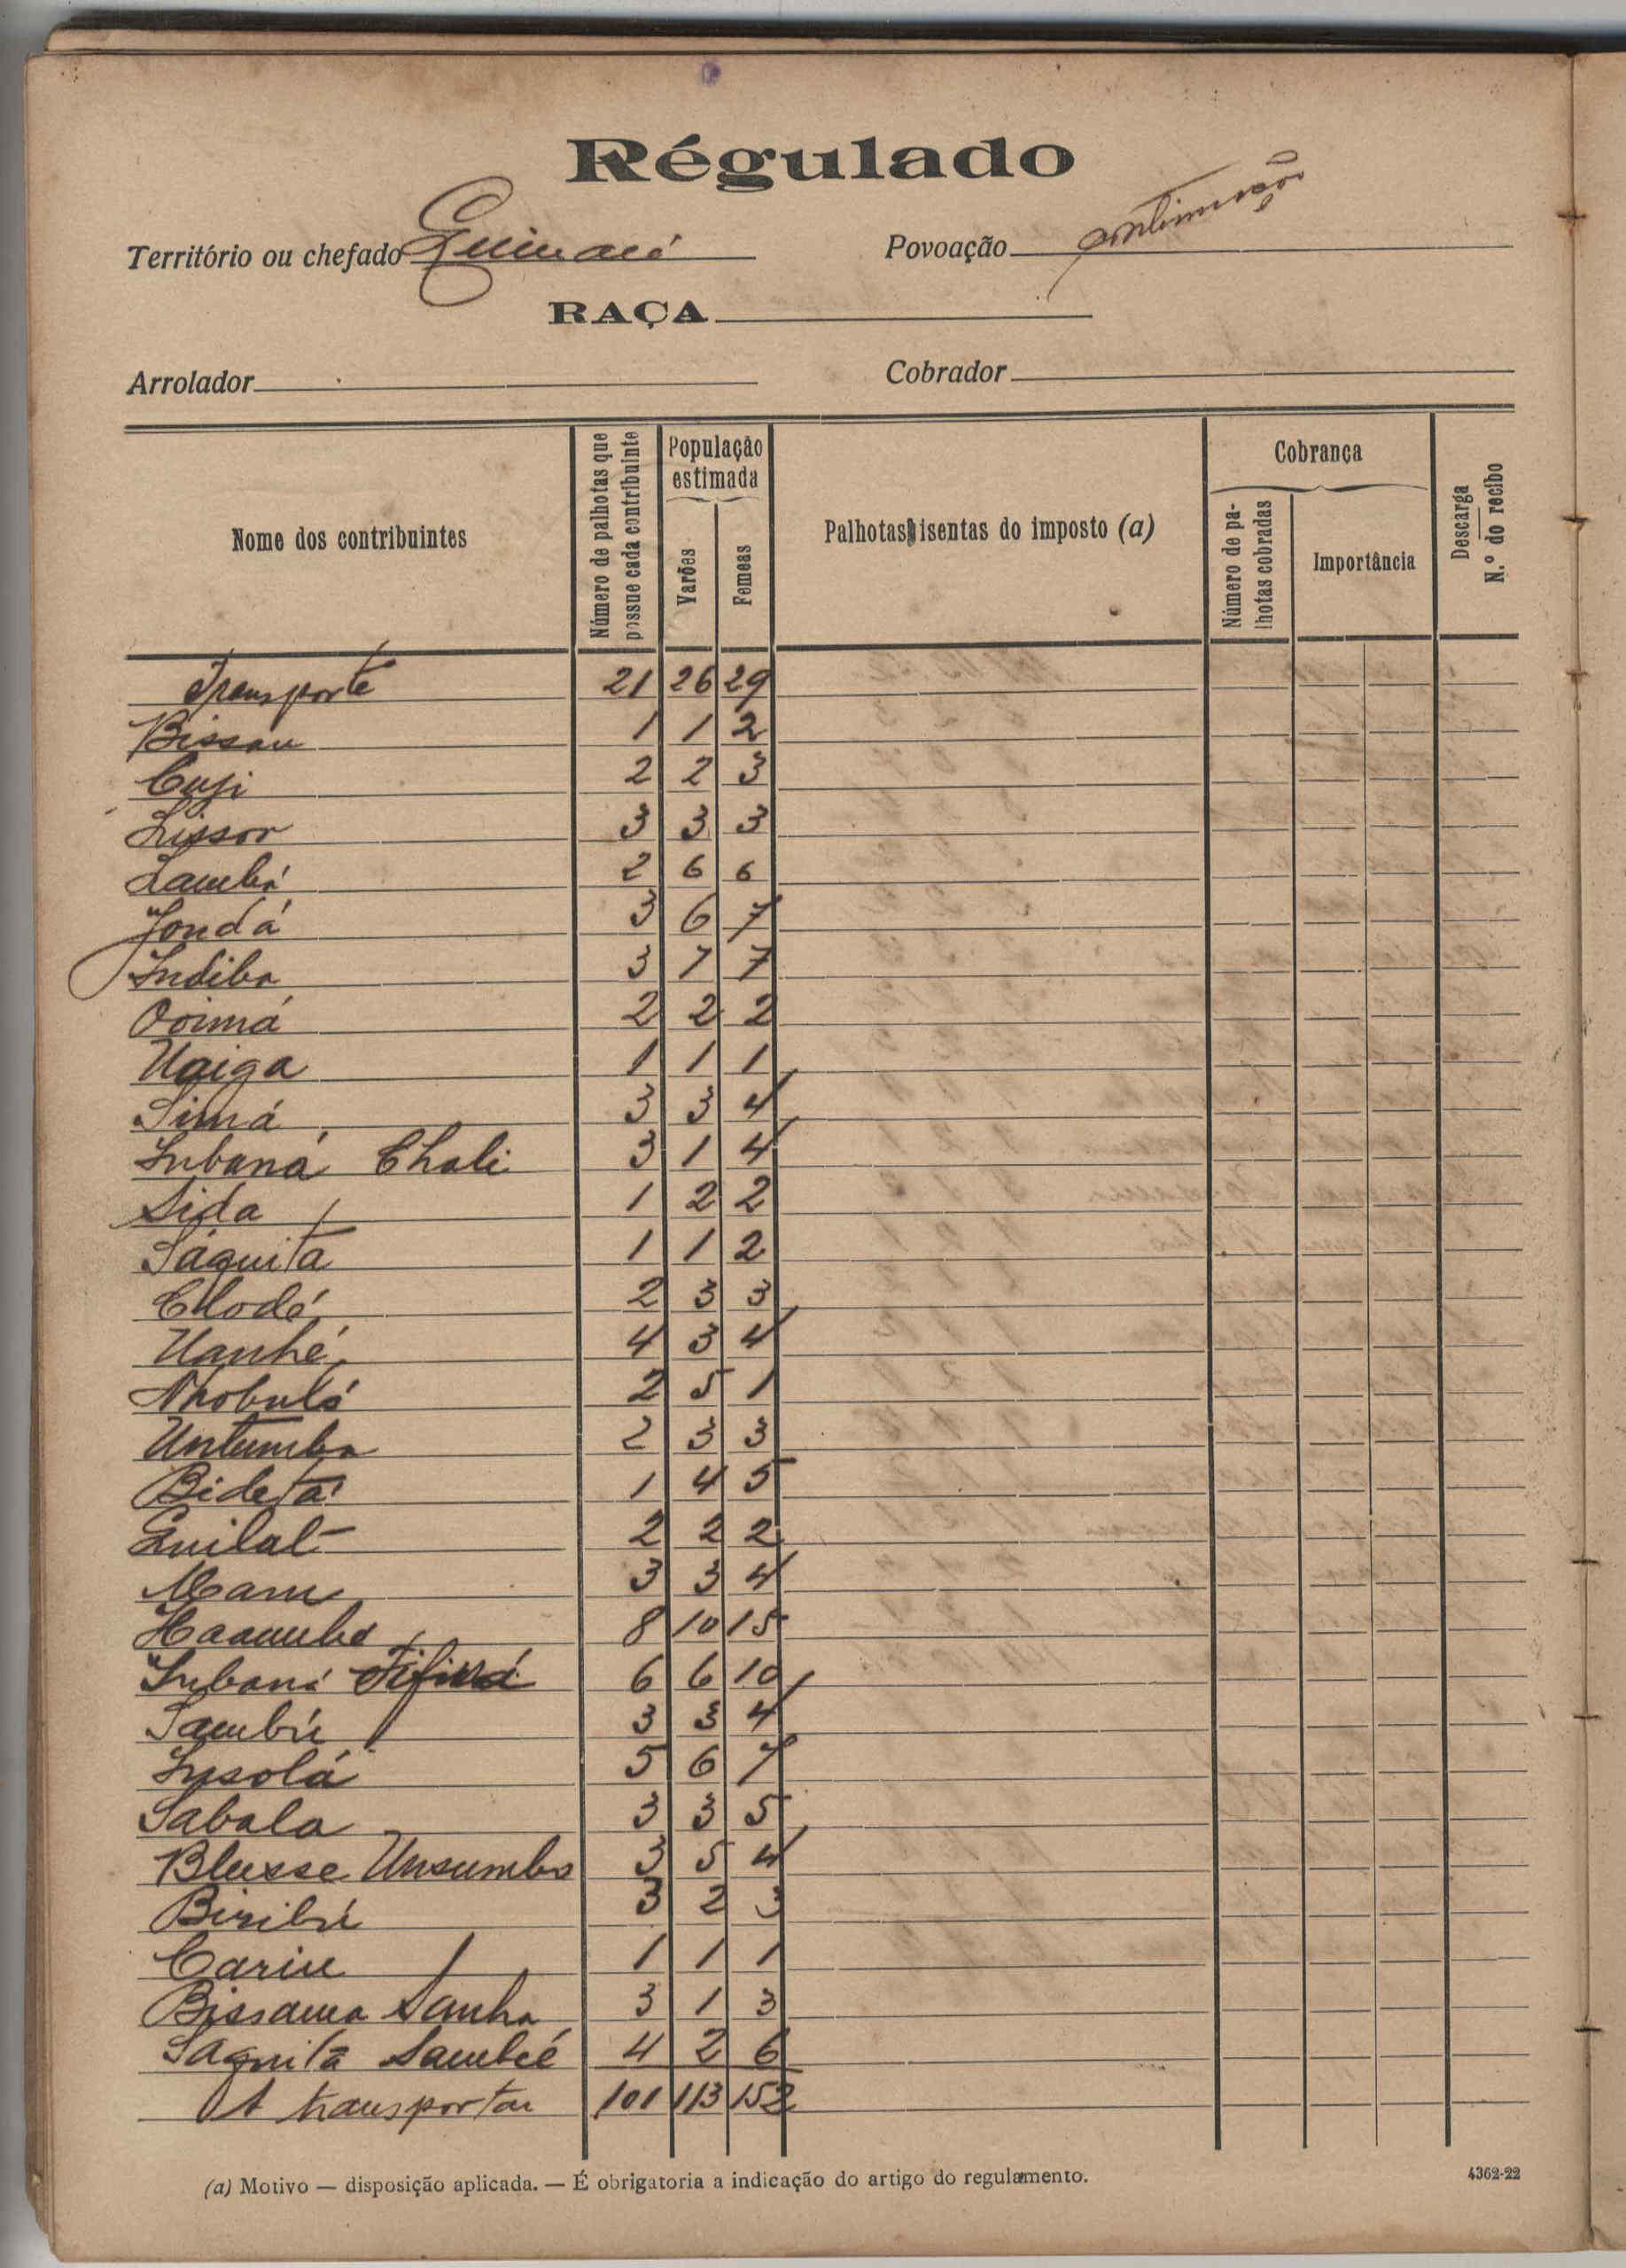 Régulado
Território ou chefado Povoação continuação
RAÇA
Arrolador Cobrador
Nome dos contribuintes
Número de palhotas que possue cada contribuinte
População estimada
Varões
Femeas
Palhotas isentas do imposto (a)
Cobrança
Número de palhotas cobradas
Importância
Descarga
N.º do recibo
Transporte 21 26 29
Bissau 1 1 2
Cuji 2 2 3
3 3 3
Lambá 2 6 6
Jondá 3 6 7
Indiba 3 7 7
Ooimá 2 2 2
Uaiga 1 1 1
Simá 3 3 4
Inbaná Chali 3 1 4
Sida 1 2 2
Sáquita 1 1 2
Clodé 2 3 3
Uanhé 4 3 4
Nhobuló 2 5 1
Untumba 2 3 3
Bidetá 1 4 5
Quilal 2 2 2
Maru 3 3 4
8 10 15
Inbaná 6 6 10
Sambú 3 3 4
Insolá 5 6 7
Sabala 3 3 5
Blusse Unsumba 3 5 4
Biribú 3 2 3
Cariu 1 1 1
Bissama Sanha 3 1 3
Saquitá Sambé 4 2 6
A transportar 101 113 152
(a) Motivo — disposição aplicada. — É obrigatoria a indicação do artigo do regulamento.
4362-22